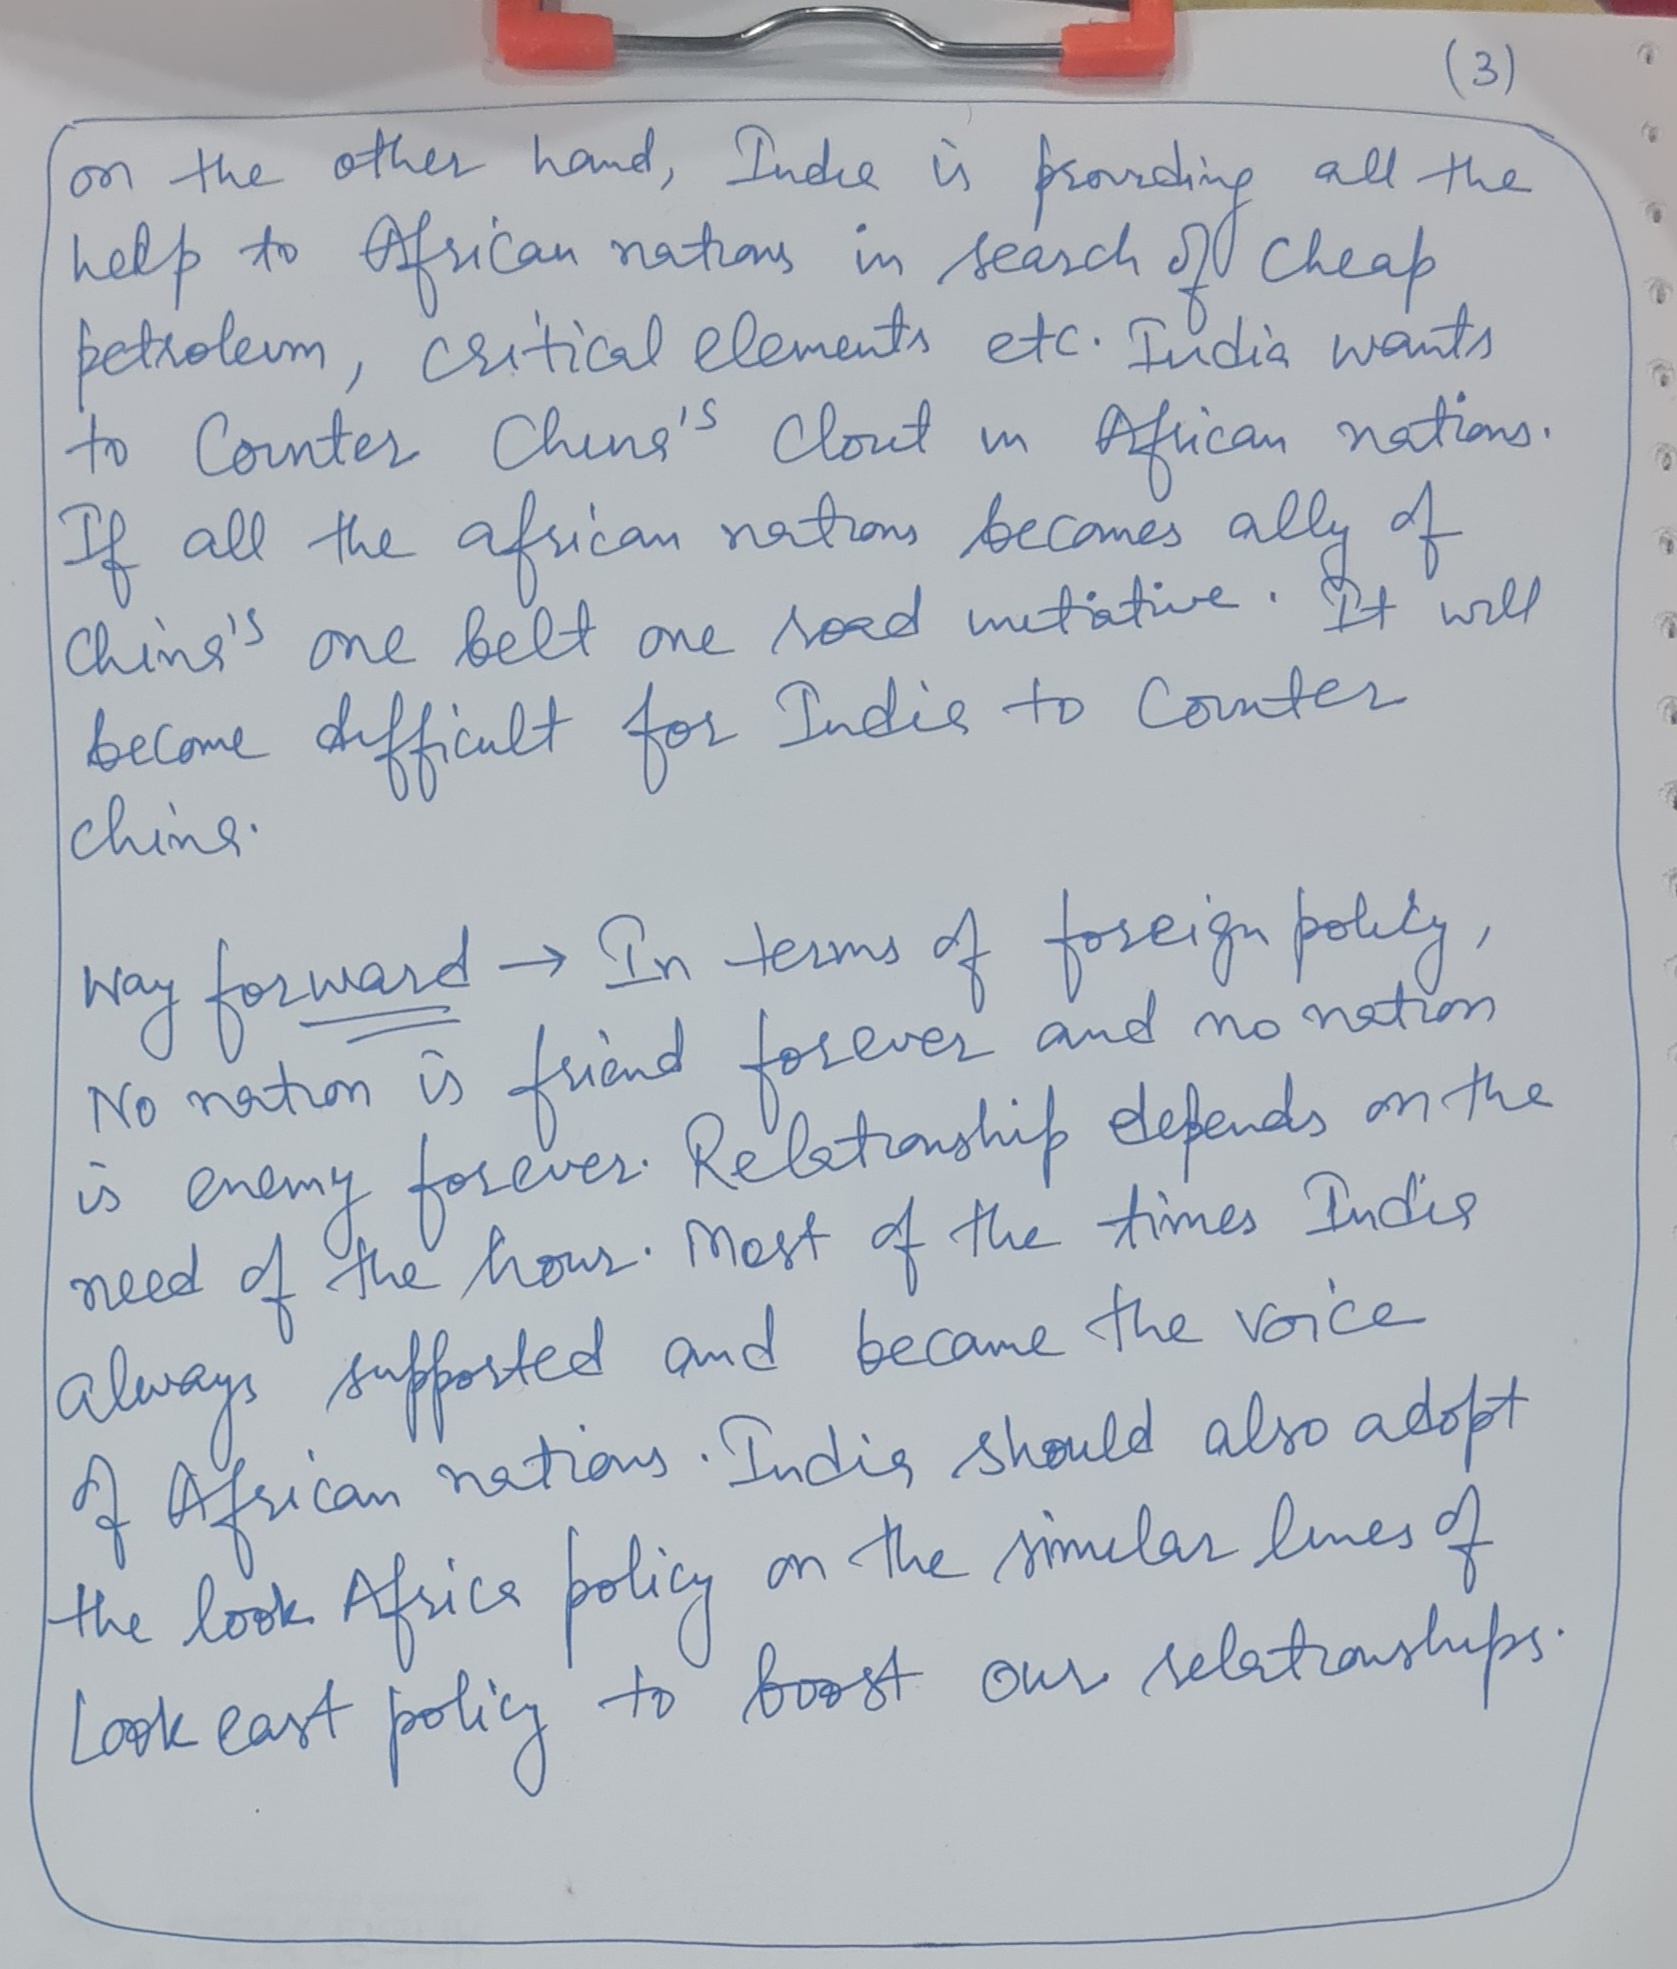 (3)
on the other hand, India is providing all the
help to African nations in search of cheap
petroleum, critical elements etc. India wants
to Counter China's Clout in African nations.
If all the african nations becomes ally of
China's one belt one road initiative. It will
become difficult for India to Counter
China.
Way forward → In terms of foreign policy,
No nation is friend forever and no nation
is enemy forever. Relationship depends on the
need of the hour. Most of the times India
always supported and became the voice
of African nations. India should also adopt
the look Africa policy on the similar lines of
Look east policy to boost our relationships.